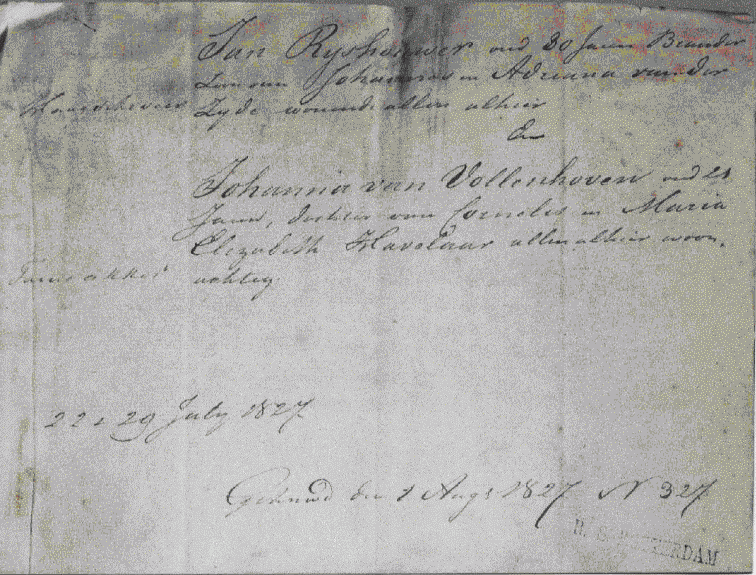 Jan Ryshouwer oud 30 Jaren Brander
Zoon van Johannes en Adriana van der
Zyde wonende allen alhier
En
Johanna van Vollenhoven oud 21
Jaren, dochter van Cornelis en Maria
Elizabeth Havelaar allen alhier woon,
achtig
22 & 29 July 1827
Getrouwd den 1 Augs 1827 N 327
ROTTERDAM